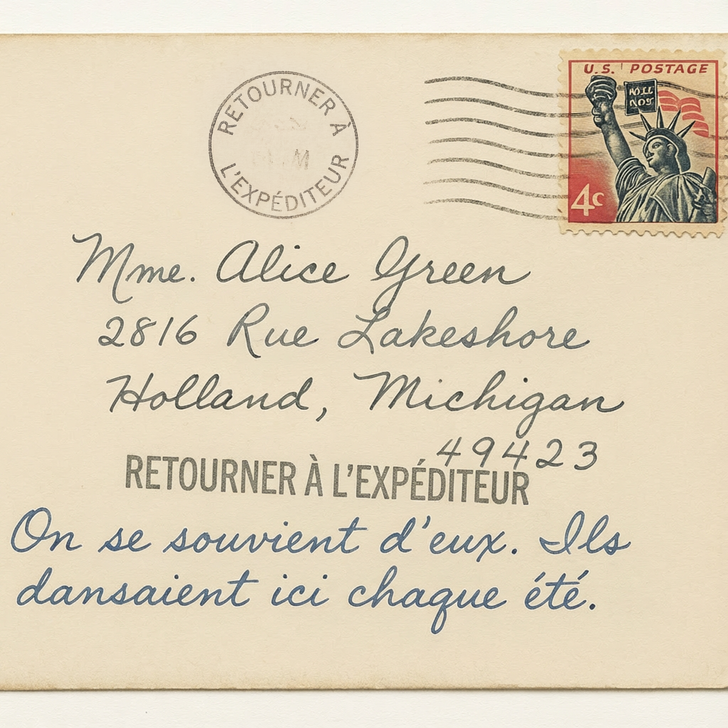 U.S. POSTAGE
4c
RETOURNER À
L'EXPÉDITEUR
Mme. Alice Green
2816 Rue Lakeshore
Holland, Michigan
49423
RETOURNER À L'EXPÉDITEUR
On se souvient d'eux. Ils
dansaient ici chaque été.